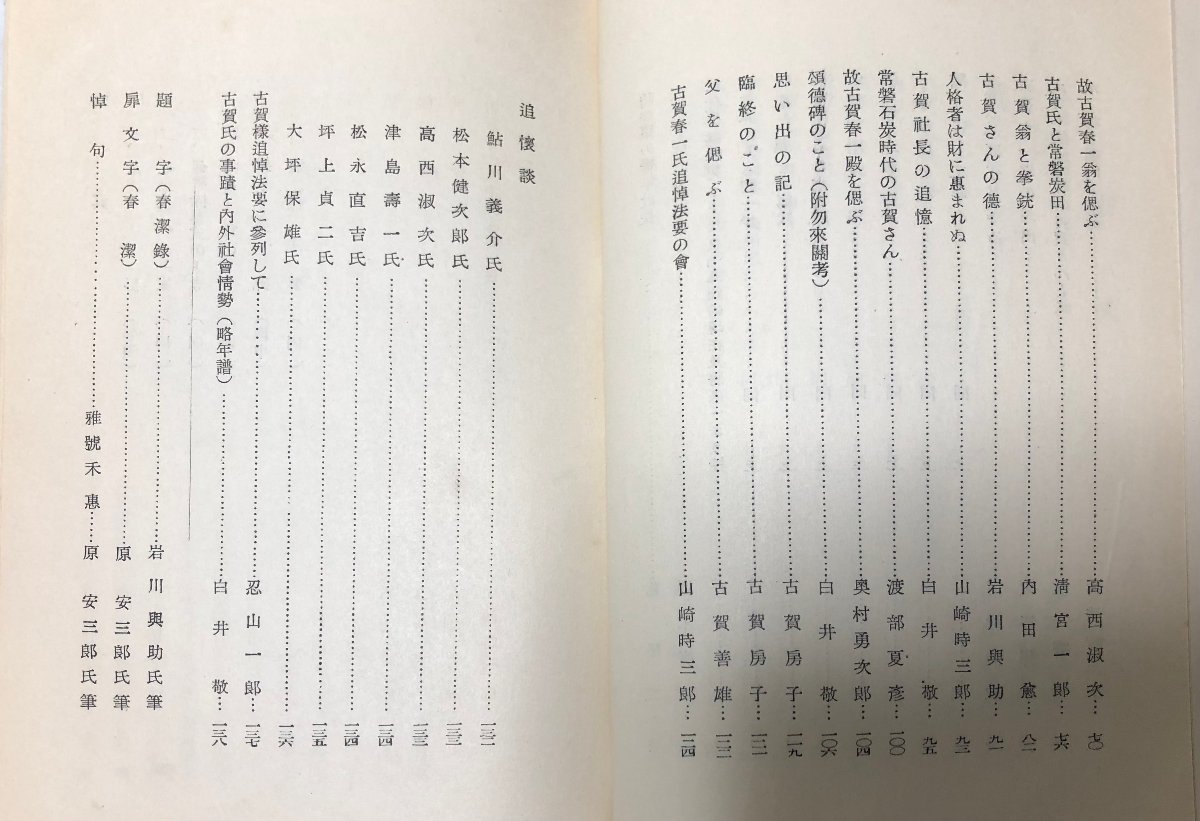 故古賀春一翁を偲ぶ……高西淑次…七〇
古賀氏と常磐炭田……清宮一郎…七六
古賀翁と拳銃……內田愈…八二
古賀さんの德……岩川與助…九一
人格者は財に惠まれぬ……山崎時三郎…九二
古賀社長の追憶……白井敬…九五
常磐石炭時代の古賀さん……渡部夏彥…一〇〇
故古賀春一殿を偲ぶ……奧村勇次郎…一〇四
頌德碑のこと（附勿來關考）……白井敬…一〇六
思い出の記……古賀房子…一一九
臨終のこと……古賀房子…
父を偲ぶ……古賀善雄…
古賀春一氏追悼法要の會……山崎時三郎…
追懷談
鮎川義介氏……
松本健次郎氏……
高西淑次氏……
津島壽一氏……一三四
松永直吉氏……一三四
坪上貞二氏……一三五
大坪保雄氏……一三六
古賀樣追悼法要に參列して……忍山一郎…一三七
古賀氏の事蹟と內外社會情勢（略年譜）……白井敬…一三八
題字（春潔錄）……岩川與助氏筆
扉文字（春潔）……原安三郎氏筆
悼句……雅號禾惠……原安三郎氏筆